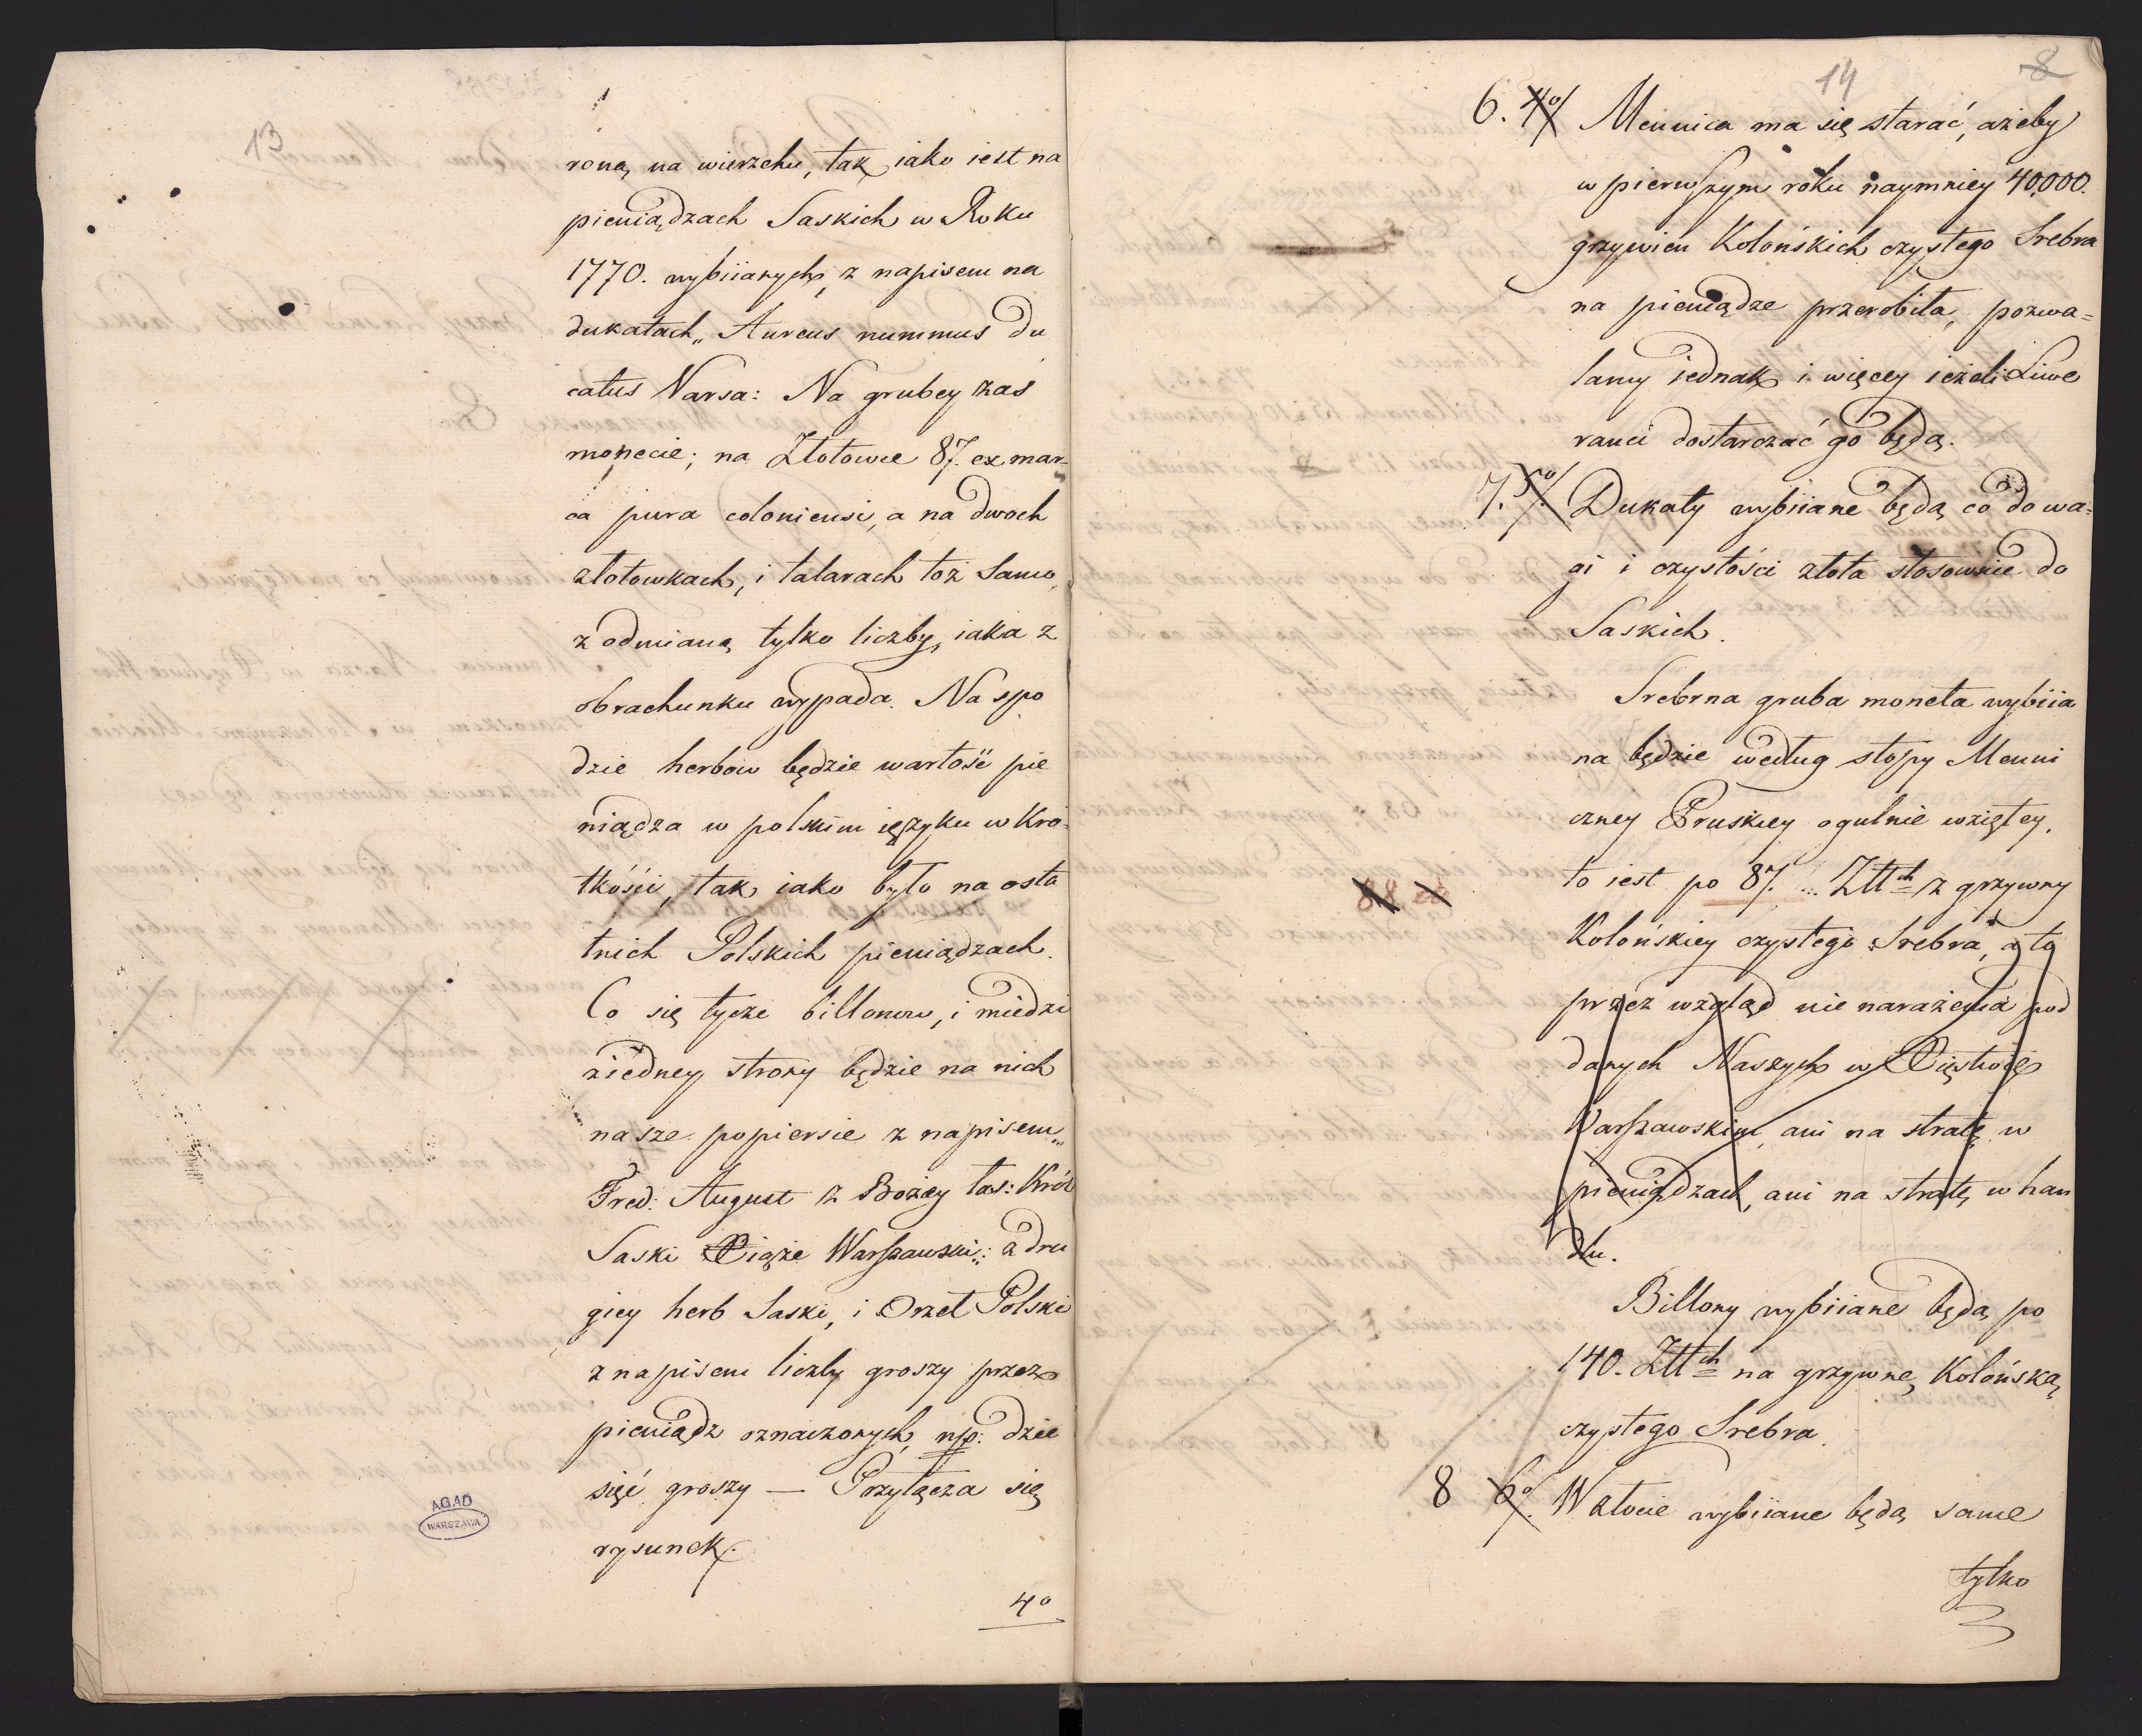 13
roną na wierzchu, tak iako iest na
pieniądzach Saskich w Roku
1770. wybiianych, z napisem na
dukatach„ Aureus nummus Du
catus Varsa: Na grubey zas
monecie; na Złotowce 87. ex mar=
ca pura coloniensi, a na dwoch
złotowkach, i talarach toż samo,
z odmianą tylko liczby, iaka z
obrachunku wypada. Na spo
dzie herbow będzie wartość pie
niądza w polskim ięzyku w kro=
tkości, tak iako było na osta
tnich Polskich pieniądzach.
Co się tycze billonow, i miedzi
ziedney strony będzie na nich
nasze popiersie z napisem„
Fred: August z Bożey łas: Król
Saski Xiąże Warszawski„: a dru
giey herb Saski, i Orzeł Polski
z napisem liczby groszy przez
pieniądz oznaczonych, np: dzie
sięć groszy — Przyłącza się
rysunek.
4o
AGAD
WARSZAWA
14 8
6. 4o/ Mennica ma się starać, ażeby
w pierwszym roku naymniey 40,000.
grzywien Kolońskich czystego Srebra
na pieniądze przerobiła, pozwa=
lamy iednak i więcey ieżeli Liwe
ranci dostarczać go będą.
7. 5o/ Dukaty wybiiane będą co do wa=
gi i czystości złota stosownie do
Saskich.
Srebrna gruba moneta wybiia
na będzie według stopy Menni
czney Pruskiey ogulnie wziętey,
88 to iest po 87. Złłch z grzywny
Kolońskiey czystego Srebra, a to
przez wzgląd nie narażenia pod
danych Naszych w Xięstwie
Warszawskim, ani na stratę w
pieniądzach, ani na stratę w han
dlu.
Billony wybiiane będą po
140. Złłch na grzywnę Kolońską,
czystego Srebra.
8 6o/. W złocie wybiiane będą same
tylko